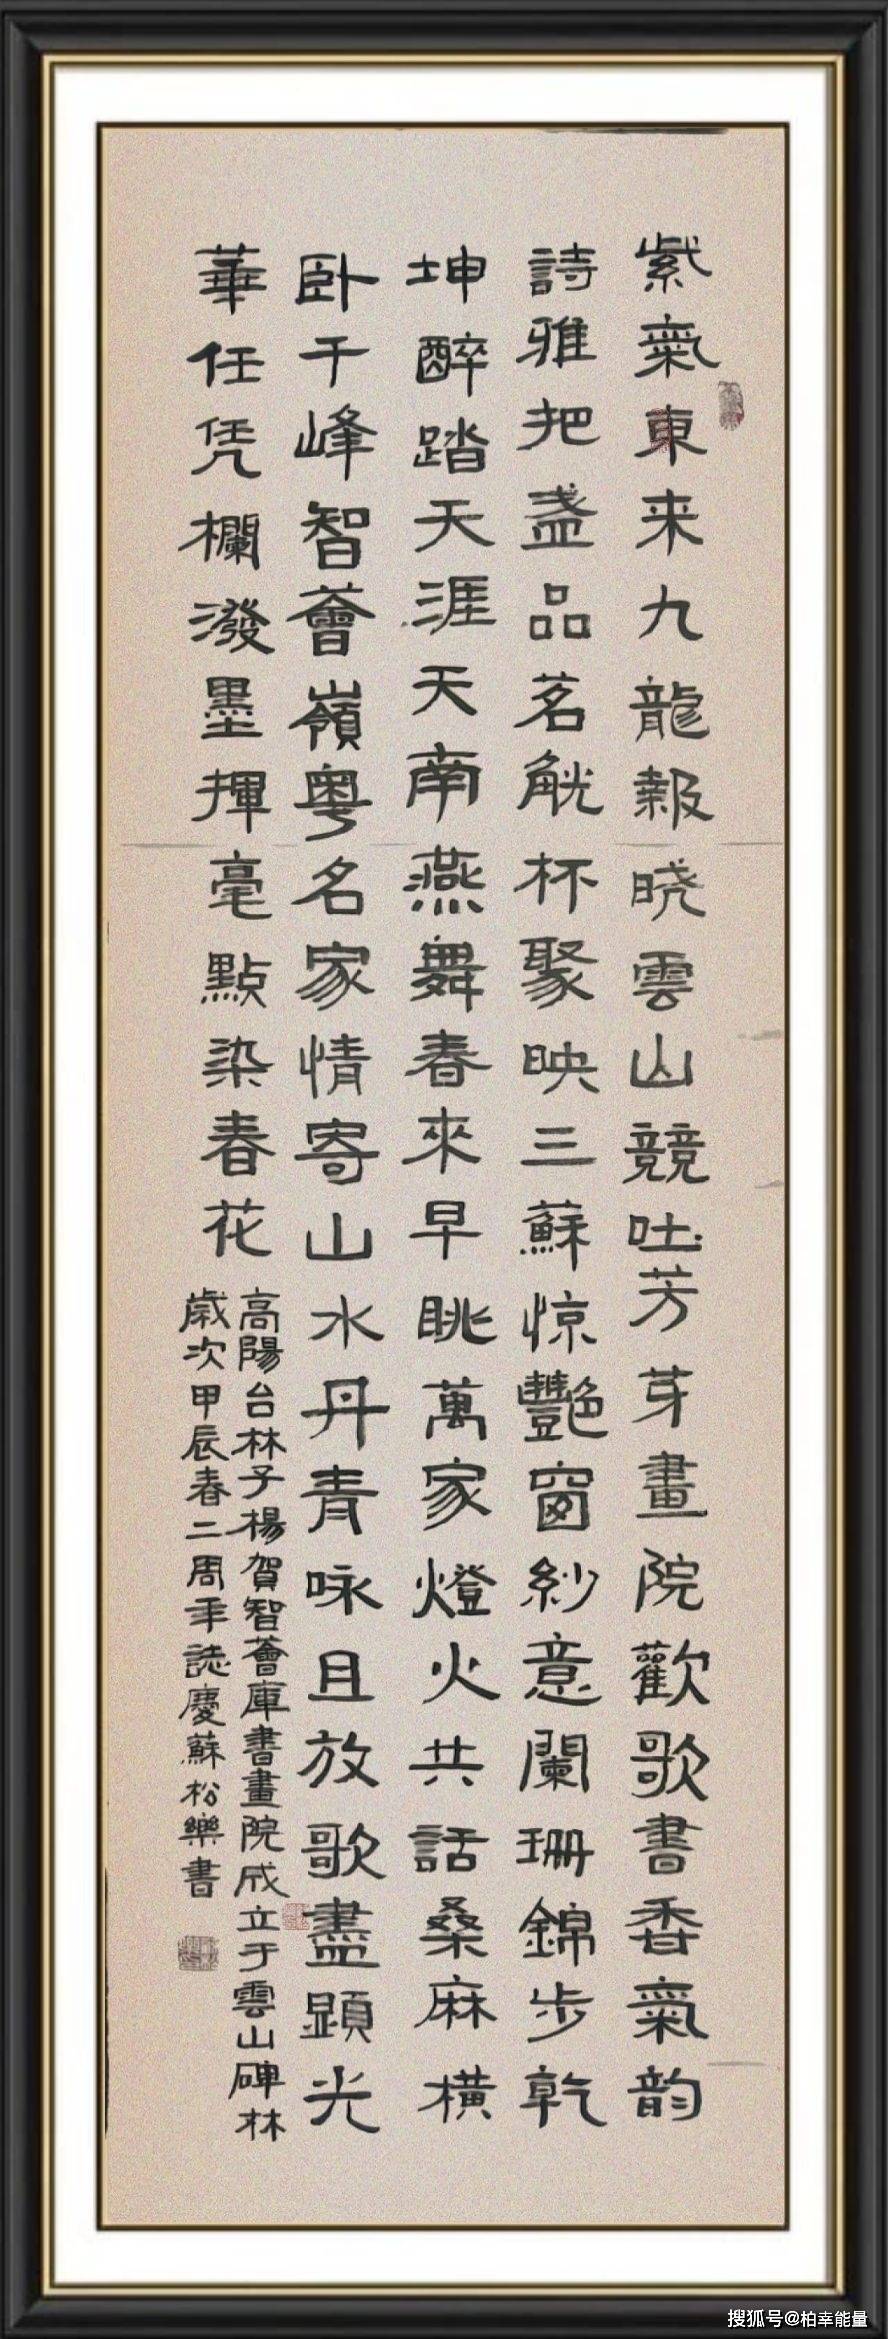 紫氣東来九龍報晓雲山競吐芳芽畫院歡歌書香氣韵
詩雅把盏品茗觥杯聚映三蘇惊艷窗紗意闌珊錦步乾
坤醉踏天涯天南燕舞春來早眺萬家燈火共話桑麻橫
卧千峰智薈嶺粤名家情寄山水丹青咏且放歌盡顕光
華任凭欄潑墨揮毫點染春花
高陽台林子楊賀智薈庫書畫院成立于雲山碑林
歲次甲辰春二周年誌慶蘇松樂書
搜狐号@柏幸能量